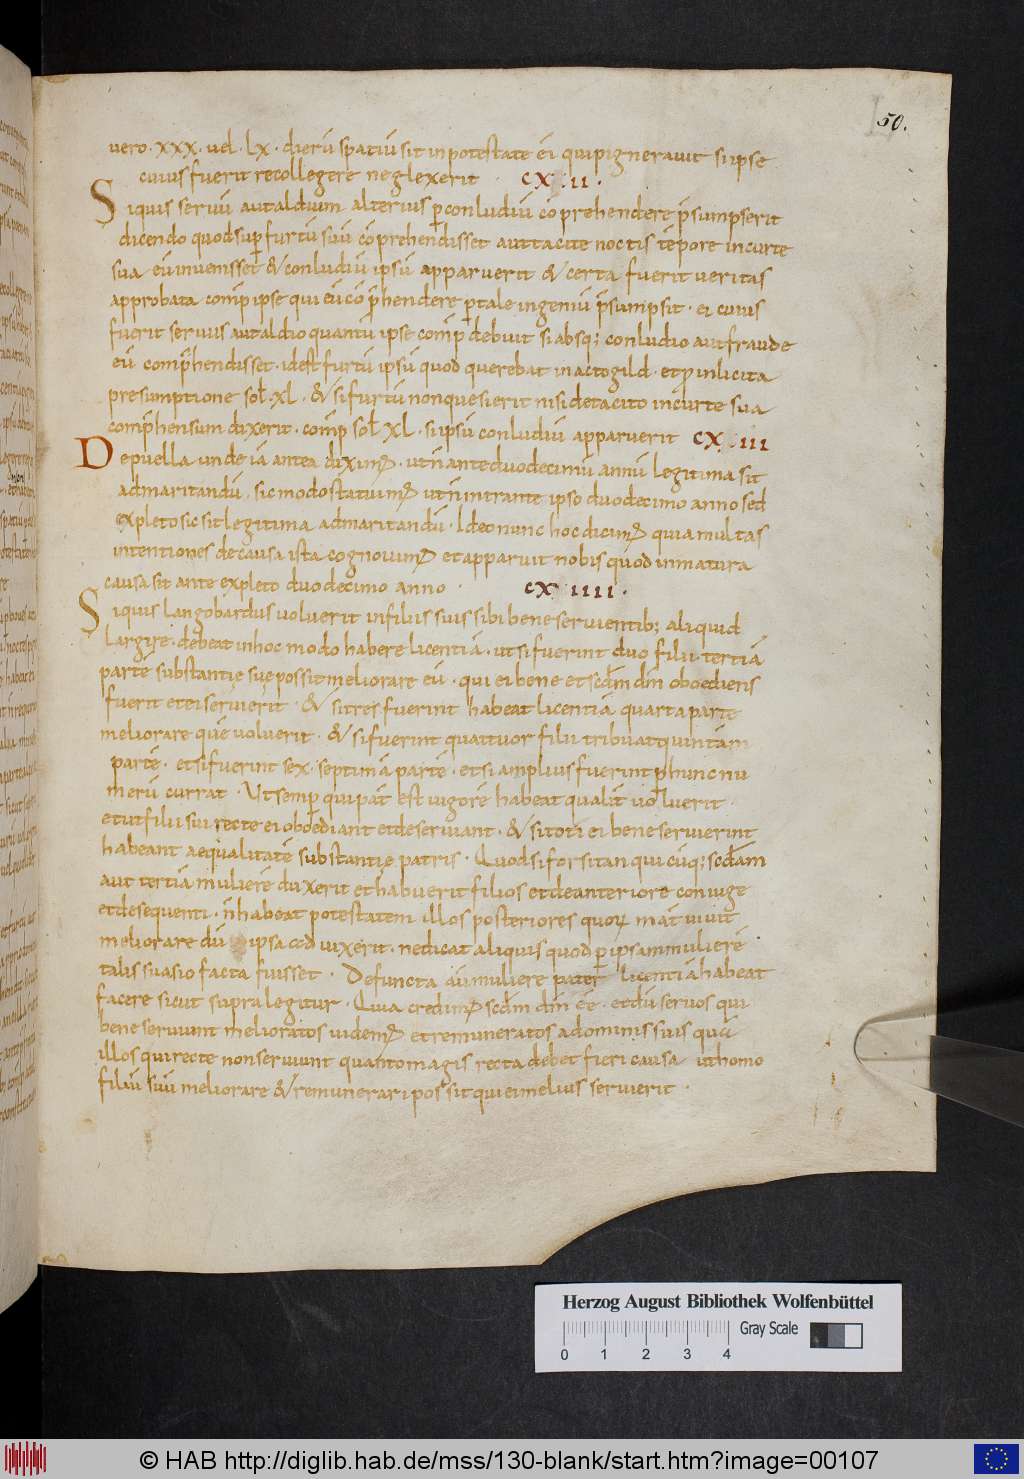 50.
uero · xxx · uel · lx · dierū spatiū sit in potestate ei qui pignerauit si ipse
cuius fuerit recollegere neglexerit · cx ii ·
Si quis seruū aut aldium alterius p conludiū cōprehendere p̄sumpserit
dicendo quod sup furtū suū cōprehendisset aut tacite noctis tēpore in curte
sua eū inuenisset & conludiū ipsū apparuerit & certa fuerit ueritas
approbata comp̄ ipse qui eū cōp̄hendere p tale ingeniū p̄sumpsit · ei cuius
fuerit seruus aut aldio quantū ipse comp̄ debuit si absq; conludio aut fraude
eū comp̄hendisset · id est furtū ipsū quod querebat in actogild · et p inlicita
presumptione sol · xl · & si furtū non quesierit nisi de tacito in curte sua
comp̄hensum dixerit · comp̄ sol XL · si ipsū conludiū apparuerit cx iii
De puella unde iā antea diximꝰ · ut n̄ ante duodecimū annū legitima sit
ad maritandū · sic modo statuimꝰ ut n̄ intrante ipso duodecimo anno sed
expleto sic sit legitima ad maritandū · Ideo nunc hoc dicimꝰ quia multas
intentiones de causa ista cognouimꝰ et apparuit nobis quod inmatura
causa sit ante expleto duodecimo anno · cx iiii ·
Si quis langobardus uoluerit in filiis suis sibi bene seruientib; aliquid
largire · debeat in hoc modo habere licentiā · ut si fuerint duo filii tertiā
partē substantię suę possit meliorare eū · qui ei bene et scdm dm̄ oboediens
fuerit et ei seruierit · & si tres fuerint habeat licentiā quarta parte
meliorare quē uoluerit · & si fuerint quattuor filii tribuat quintām
partē · et si fuerint sex · septimā partē · et si amplius fuerint p hunc nu
merū currat · Ut semp qui pat̄ est uigorē habeat qualit̄ uoluerit ·
et ut filii sui recte ei oboediant et deseruiant · & si toti ei bene seruierint
habeant aequalitatē substantię patris · Quod si forsitan quicūq; scdam
aut tertiā mulierē duxerit et habuerit filios et de anteriore coniuge
et de sequenti · n̄ habeat potestatem illos posteriores quoꝝ mat̄ uiuit
meliorare dū ipsa ad uixerit · ne dicat aliquis quod p ipsam mulierē
talis suasio facta fuisset · Defuncta aū muliere pater licentiā habeat
facere sicut supra legitur · Quia credimꝰ scdm dm̄ ēē · et dū seruos qui
bene seruiunt melioratos uidemꝰ et remuneratos a dominis suis quā
illos qui recte non seruiunt quanto magis recta debet fieri causa ut homo
filiū suū meliorare & remunerari possit qui ei melius seruierit ·
Herzog August Bibliothek Wolfenbüttel
Gray Scale
0 1 2 3 4
© HAB http://diglib.hab.de/mss/130-blank/start.htm?image=00107